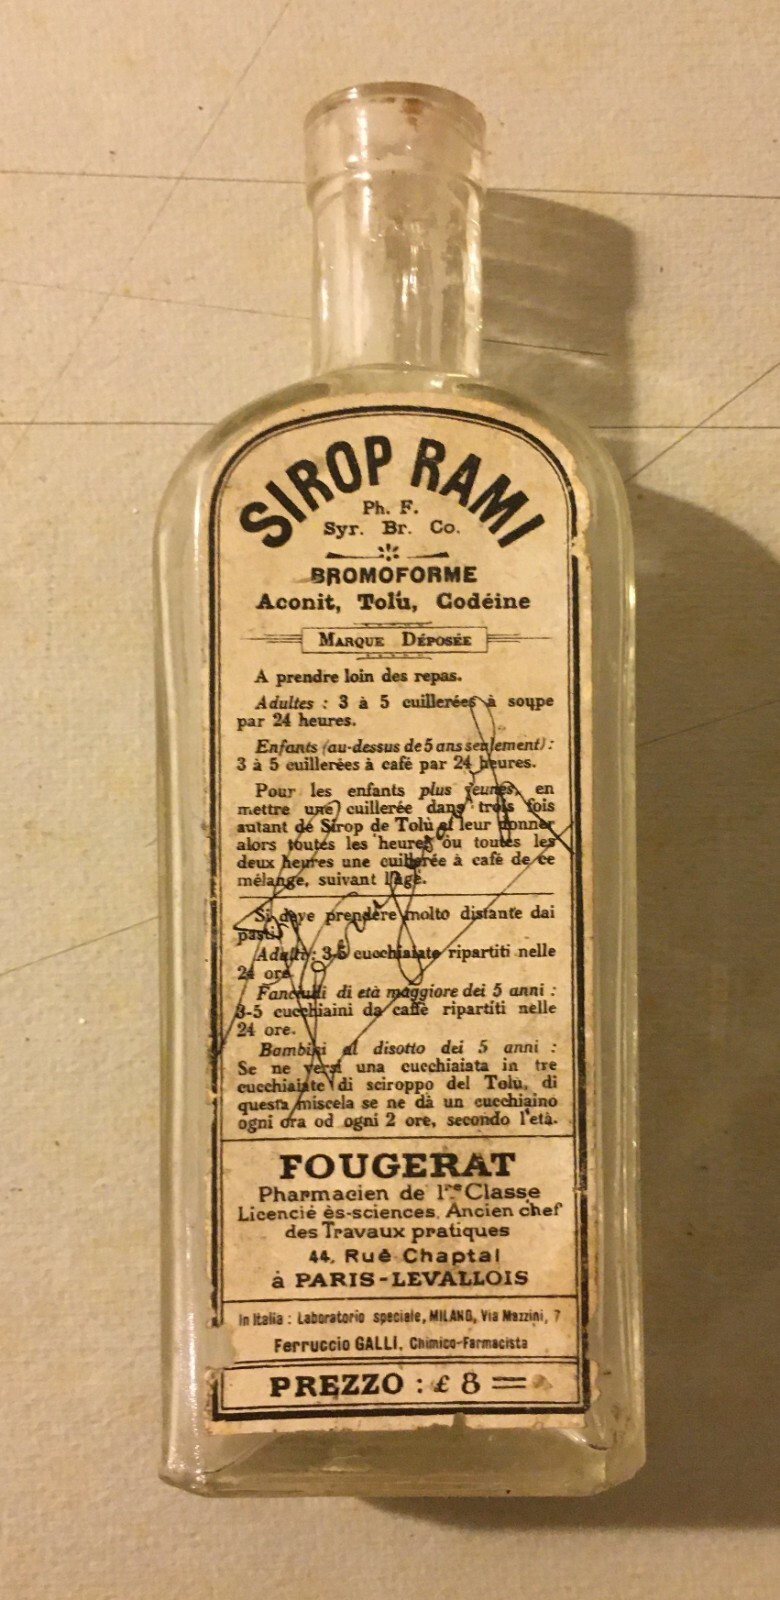 SIROP RAMI
Ph. F.
Syr. Br. Co.
BROMOFORME
Aconit, Tolù, Codéine
MARQUE DÉPOSÉE
A prendre loin des repas.
Adultes : 3 à 5 cuillerées à soupe
par 24 heures.
Enfants (au-dessus de 5 ans seulement) :
3 à 5 cuillerées à café par 24 heures.
Pour les enfants plus jeunes, en
mettre une cuillerée dans trois fois
autant de Sirop de Tolù et leur donner
alors toutes les heures ou toutes les
deux heures une cuillerée à café de ce
mélange, suivant l'âge.
Si deve prendere molto distante dai
pasti.
Adulti : 3-5 cucchiaiate ripartiti nelle
24 ore.
Fanciulli di età maggiore dei 5 anni :
3-5 cucchiaini da caffè ripartiti nelle
24 ore.
Bambini al disotto dei 5 anni :
Se ne versi una cucchiaiata in tre
cucchiaiate di sciroppo del Tolù, di
questa miscela se ne dà un cucchiaino
ogni ora od ogni 2 ore, secondo l'età.
FOUGERAT
Pharmacien de 1re Classe
Licencié ès-sciences, Ancien chef
des Travaux pratiques
44, Rue Chaptal
à PARIS-LEVALLOIS
In Italia : Laboratorio speciale, MILANO, Via Mazzini, 7
Ferruccio GALLI, Chimico-Farmacista
PREZZO : £ 8 =